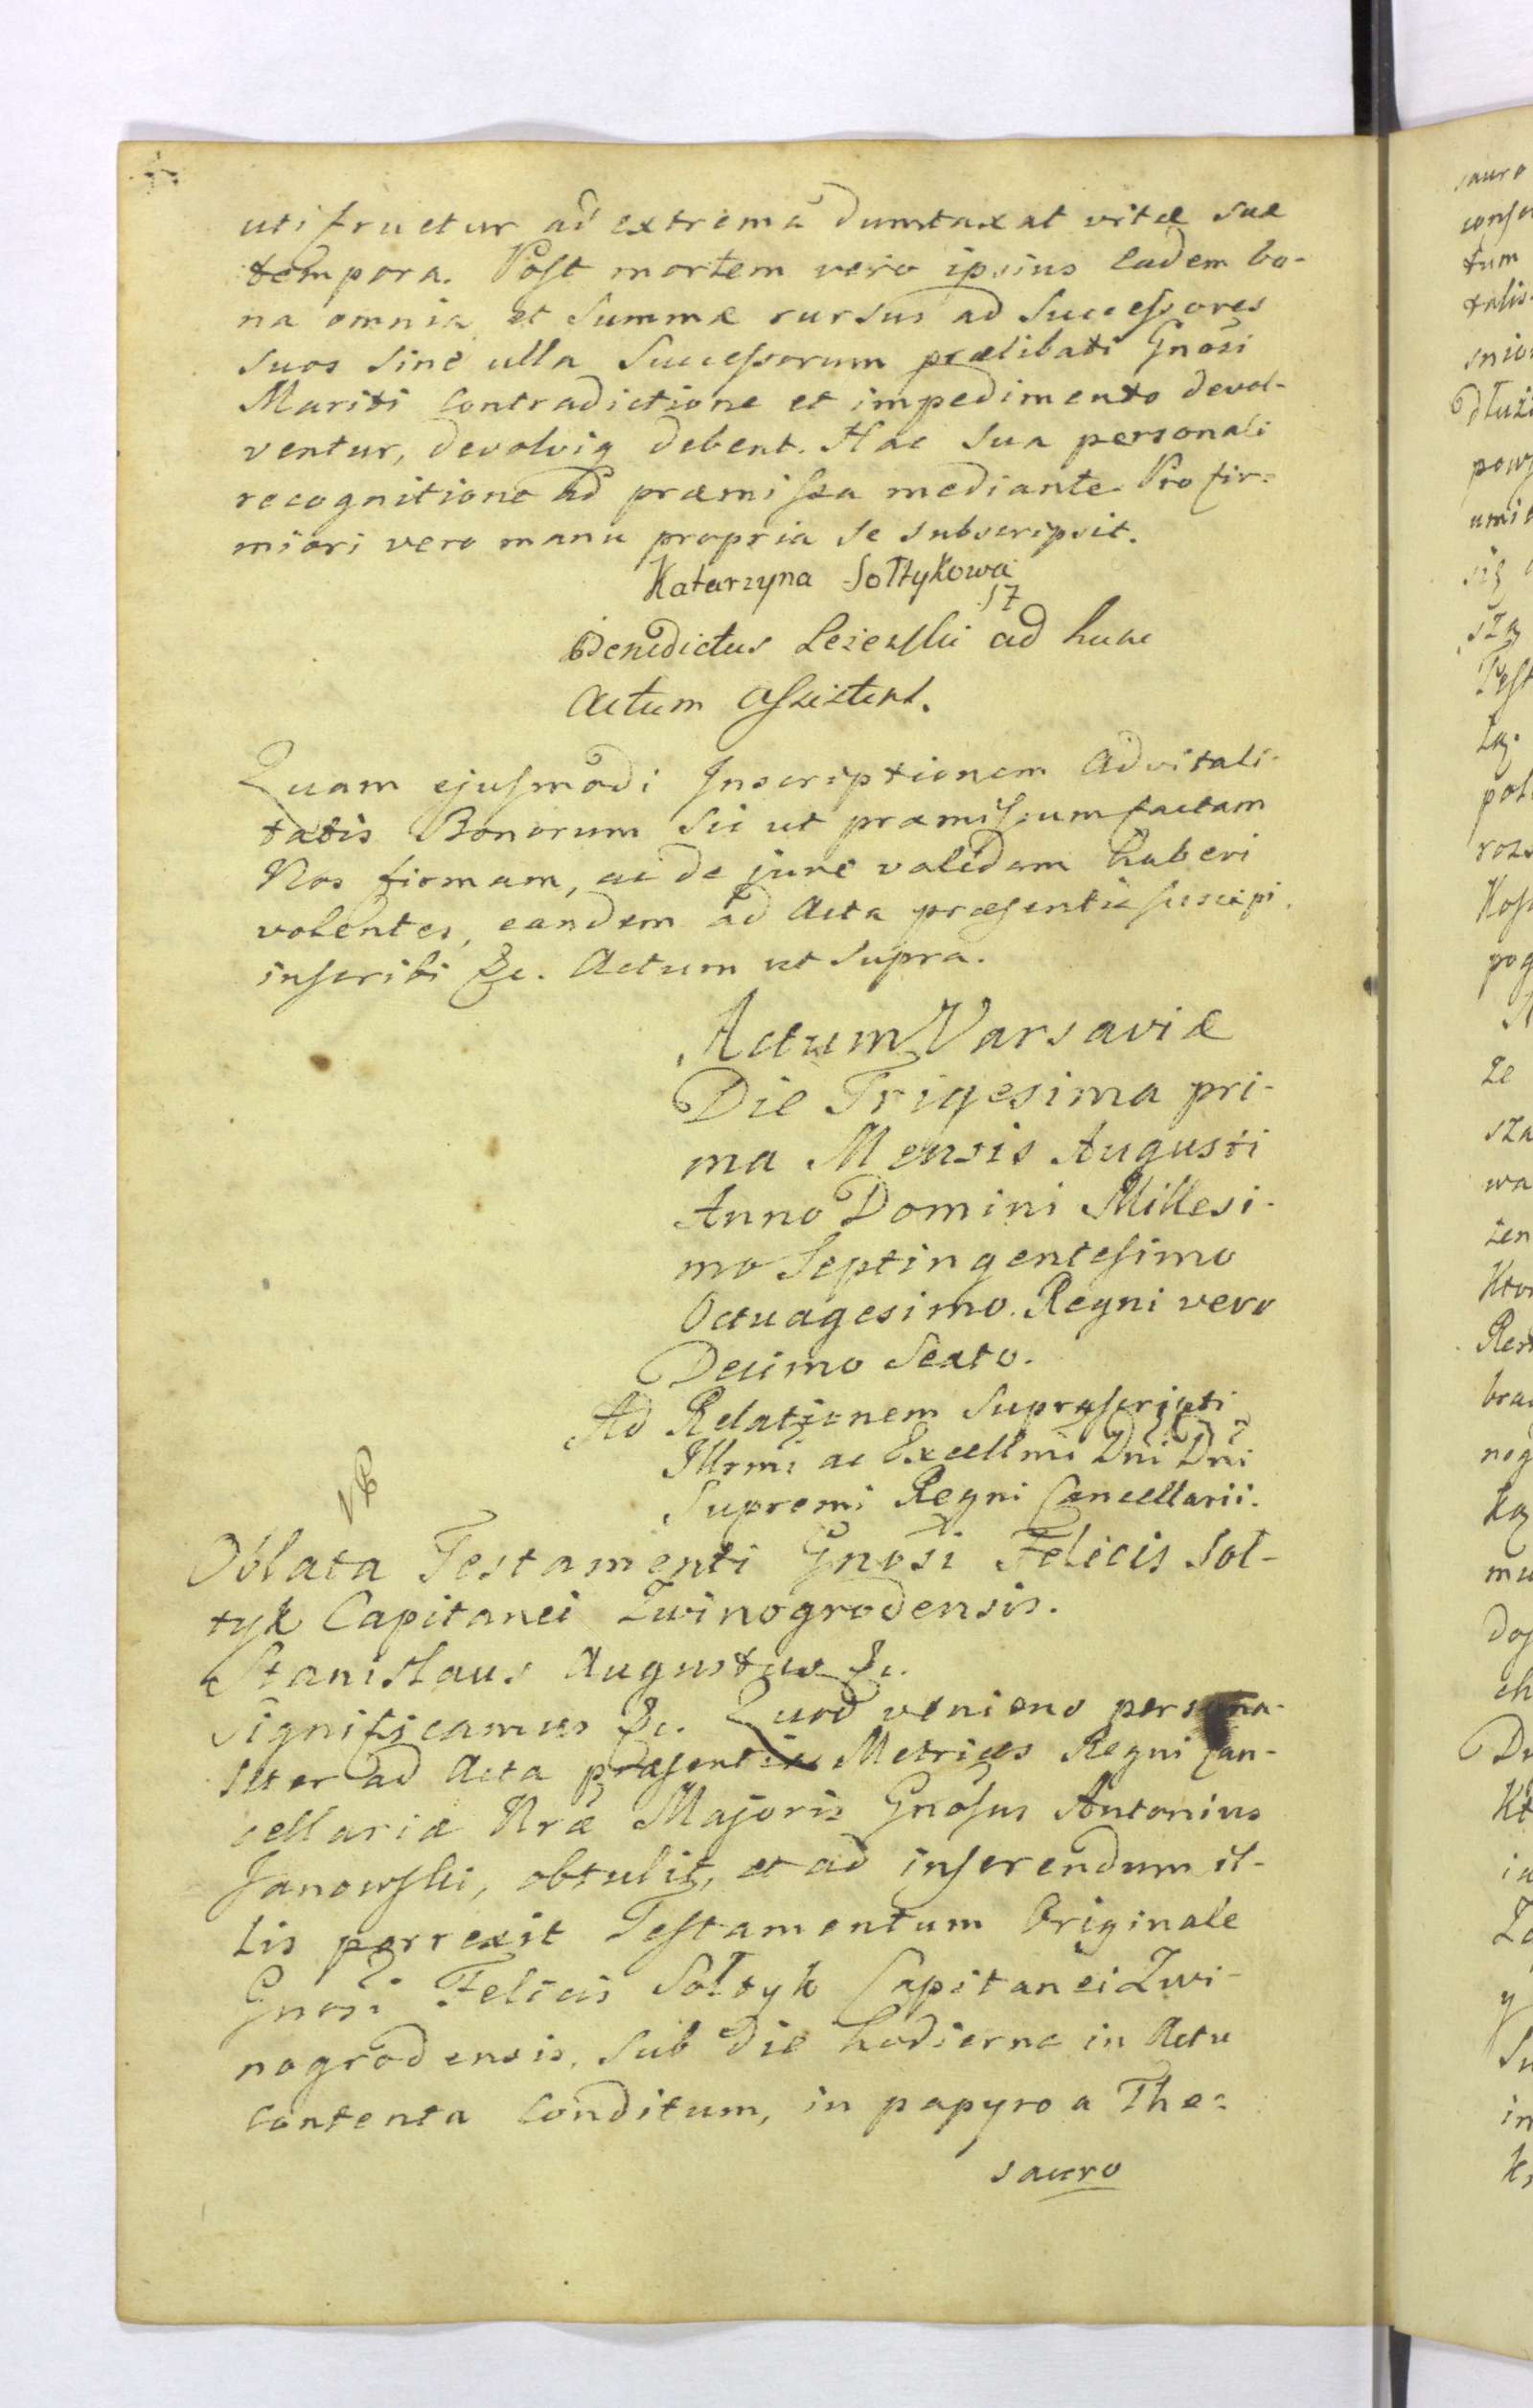 utifructur ad extrema dumtaxat vitæ suæ
tempora. Post mortem vero ipsius eadem bo-
na omnia et Summæ rursus ad Successores
suos sine ulla Successorum prælibati Gnosi
Mariti Contradictione et impedimento devol-
ventur, devolviq debent. Hac sua personali
recognitione ad præmissa mediante. Pro fir=
miori vero manu propria se subscripsit.
Katarzyna Sołtykowa
Benedictus ad hunc
Actum
Quam ejusmodi Inscriptionem Advitali-
tatis Bonorum sic ut præmissum factam
Nos firmam, ac de jure validam haberi
volentes, eandem ad Acta præsentia suscipi
inscribi &c. Actum ut supra.
Actum Varsaviæ
Die Trigesima pri-
ma Mensis Augusti
Anno Domini Millesi-
mo Septingentesimo
Octuagesimo. Regni vero
Decimo Sexto.
Ad Relationem Suprascripti
Illrmi ac Excellmi Dni Dni
Supremi Regni Cancellarii.
NB
Oblata Testamenti Gnosi Felicis Soł-
tyk Capitanei Zwinogrodensis.
Stanislaus Augustus &c.
Significamus &c. Quod veniens persona-
liter ad Acta præsentia Metrices Regni Can-
cellariæ Nræ Majoris Gnosus Antonius
Janowski, obtulit, et ad inserendum il-
lis porrexit Testamentum Originale
Gnosi Felicis Sołtyk Capitanei Zwi-
nogrodensis, sub die hodierna in Actu
contenta conditum, in papyro a The=
sauro